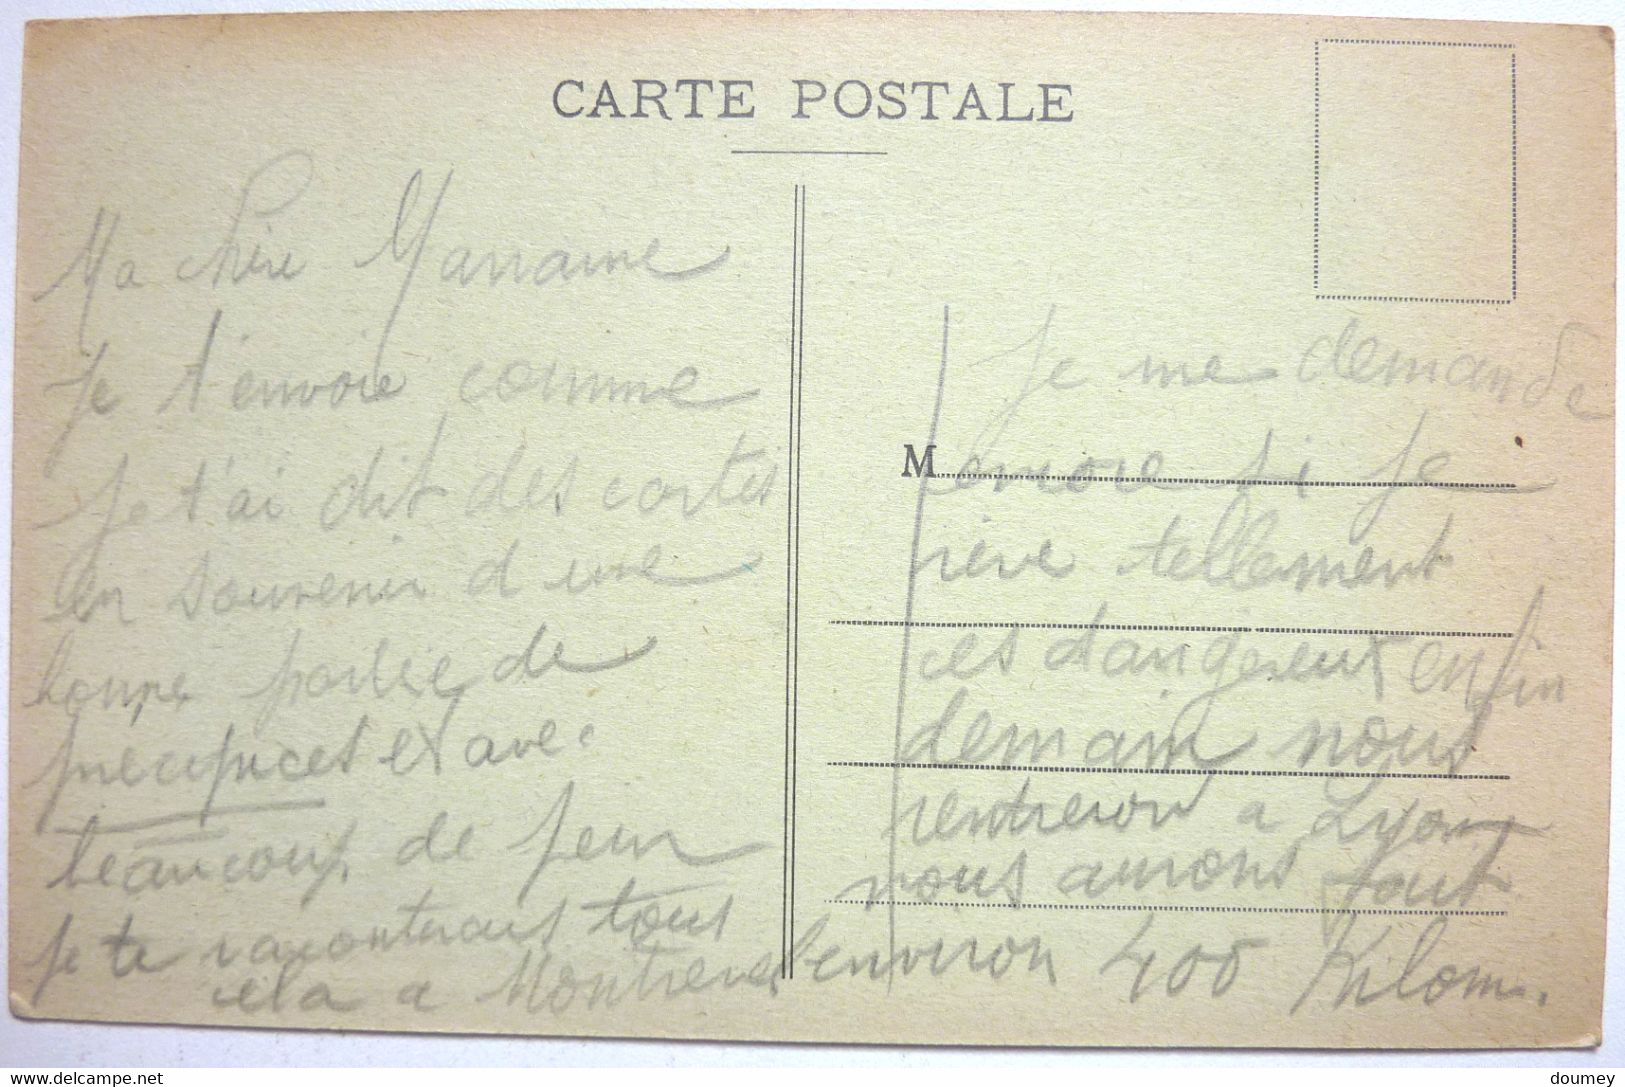 CARTE POSTALE
Ma chère Marraine
Je t'envoie comme
je t'ai dit des cartes
en souvenir d'une
bonne partie de
précipices et avec
beaucoup de peur
je te raconterais tous
cela a
Je me demande
M
encore si je
rêve tellement
ces dangereux enfin
demain nous
rentreron a Lyon
nous aurons fait
environ 400 Kilom.
www.delcampe.net
doumey